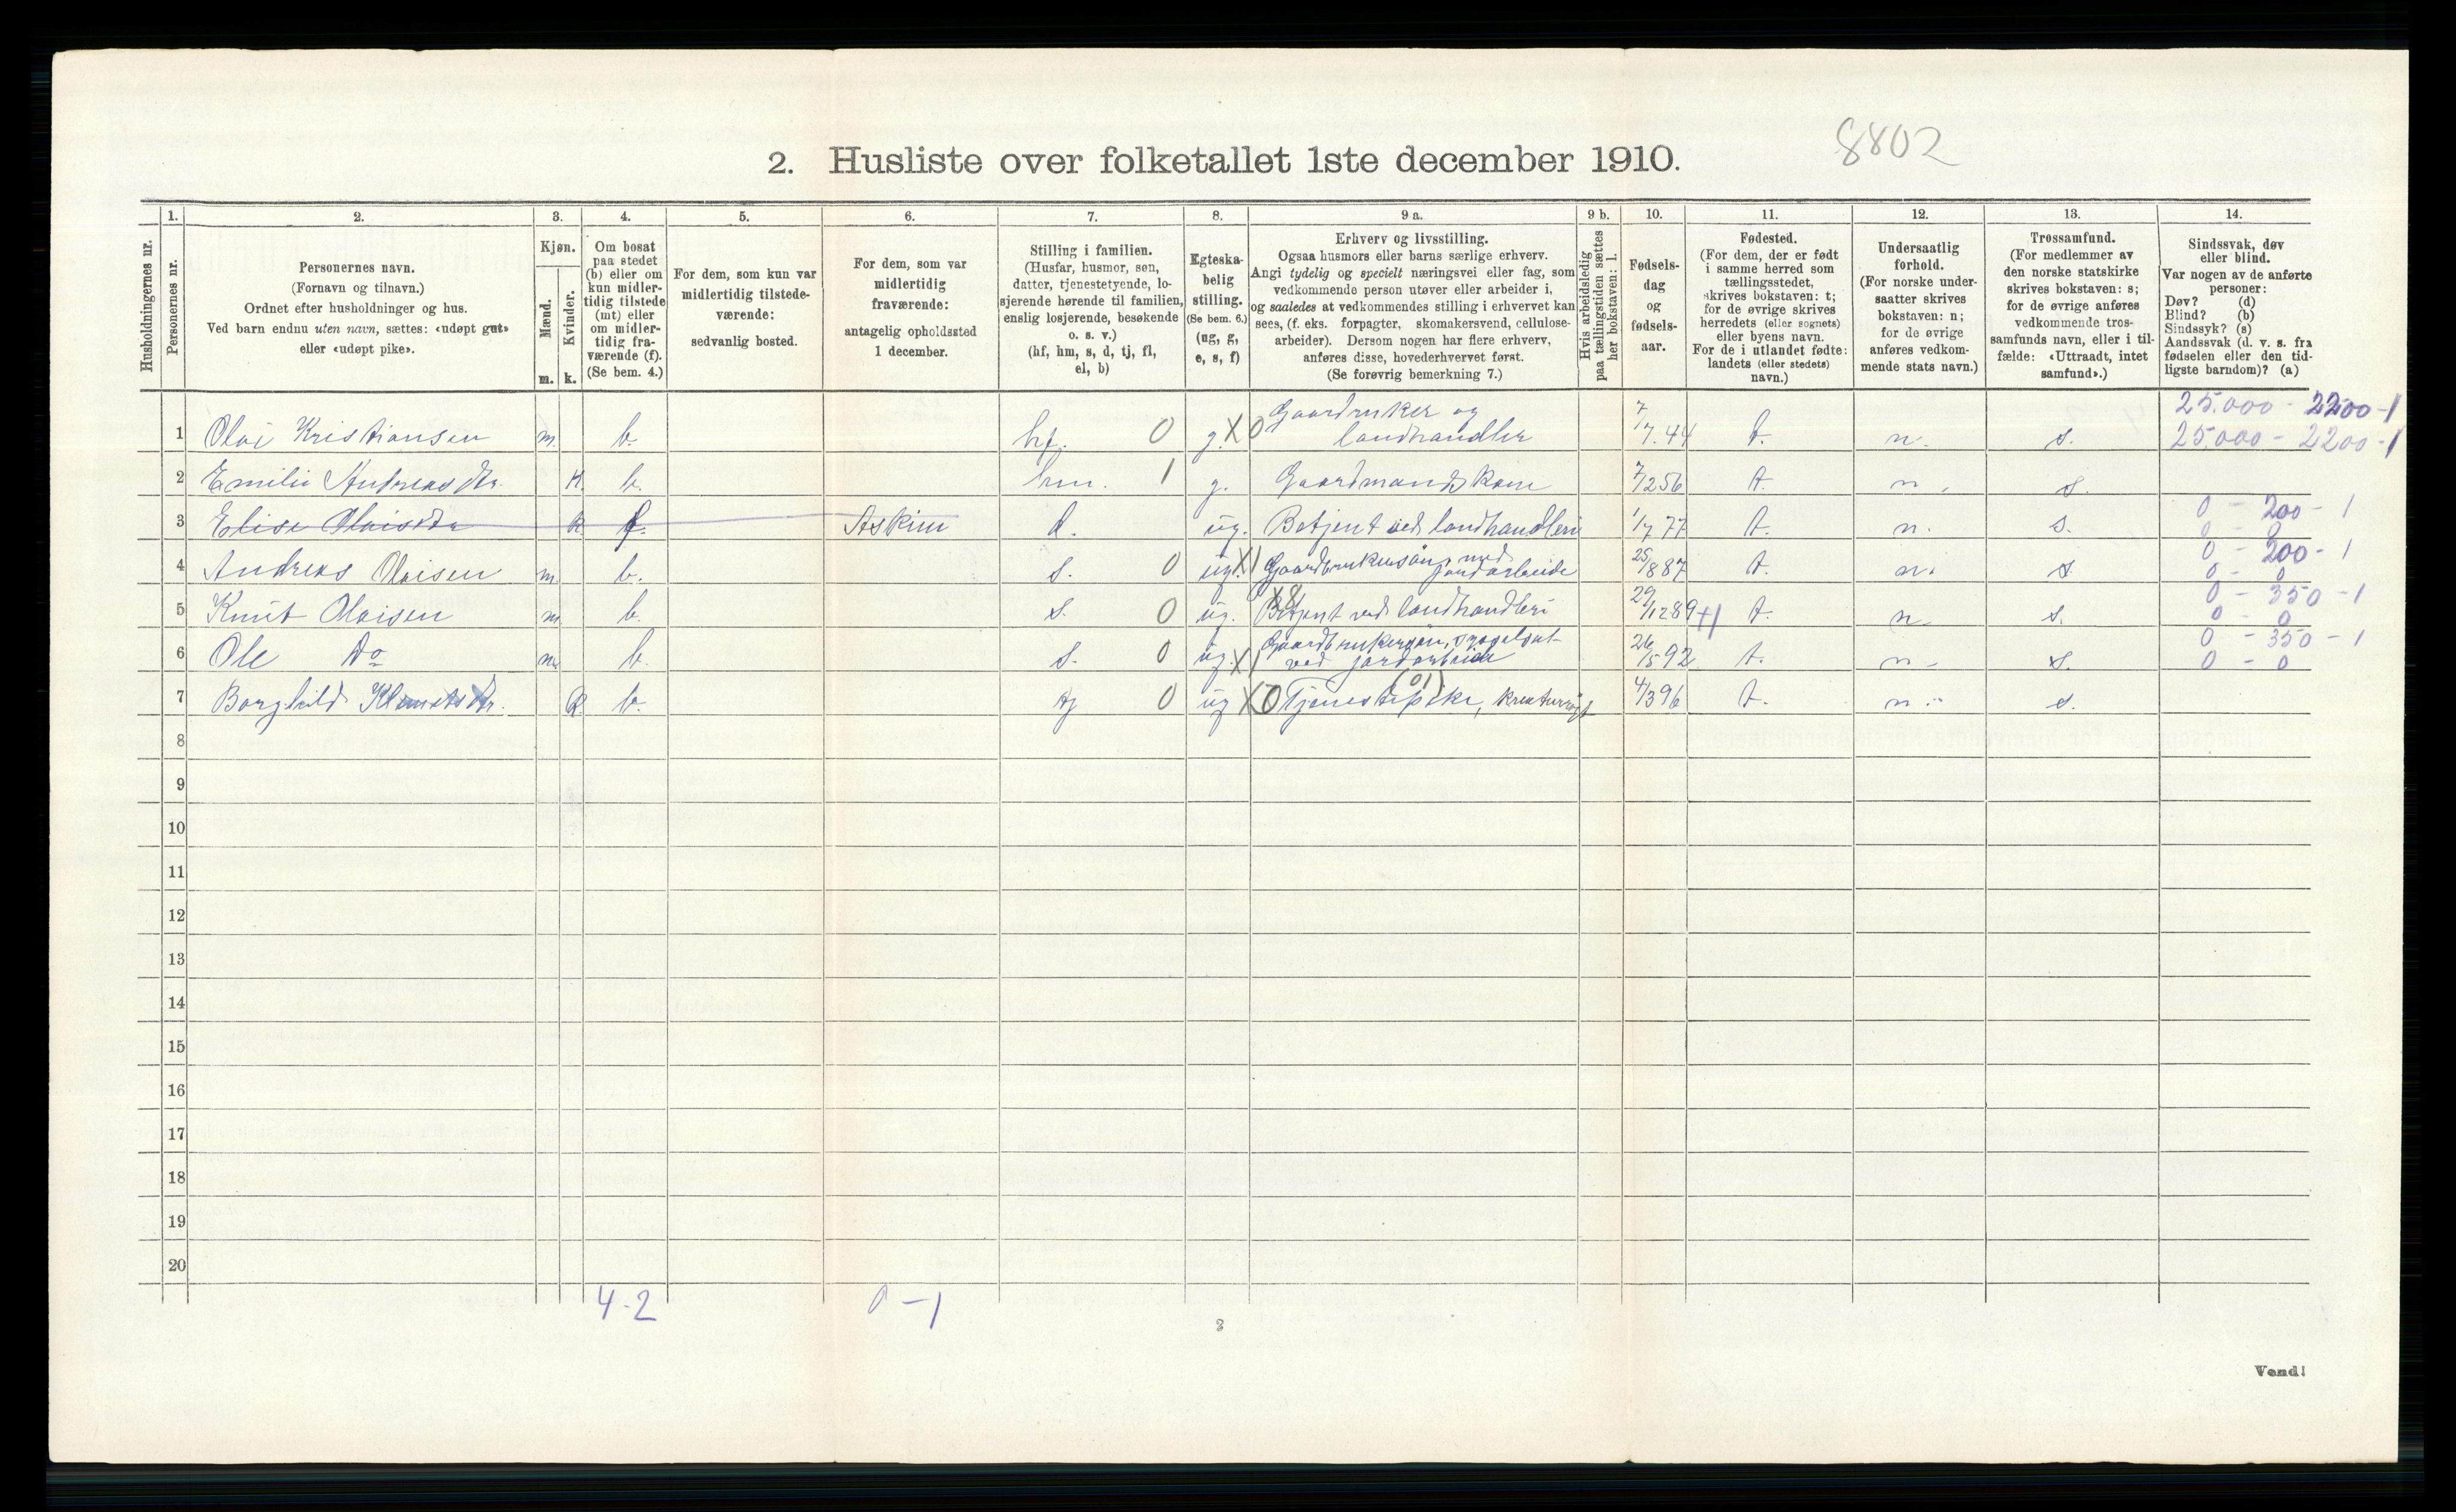 8802
2. Husliste over folketallet 1ste december 1910.
Husholdningernes nr.
1.
Personernes nr.
2.
Personernes navn.
(Fornavn og tilnavn.)
Ordnet efter husholdninger og hus.
Ved barn endnu uten navn, sættes: «udøpt gut»
eller «udøpt pike».
3.
Kjøn.
Mænd.
Kvinder.
m. k.
4.
Om bosat
paa stedet
(b) eller om
kun midler-
tidig tilstede
(mt) eller
om midler-
tidig fra-
værende (f).
(Se bem. 4.)
5.
For dem, som kun var
midlertidig tilstede-
værende:
sedvanlig bosted.
6.
For dem, som var
midlertidig
fraværende:
antagelig opholdssted
1 december.
7.
Stilling i familien.
(Husfar, husmor, søn,
datter, tjenestetyende, lo-
sjerende hørende til familien,
enslig losjerende, besøkende
o. s. v.)
(hf, hm, s, d, tj, fl,
el, b)
8.
Egteska-
belig
stilling.
(Se bem. 6.)
(ug, g,
e, s, f)
9 a.
Erhverv og livsstilling.
Ogsaa husmors eller barns særlige erhverv.
Angi tydelig og specielt næringsvei eller fag, som
vedkommende person utøver eller arbeider i,
og saaledes at vedkommendes stilling i erhvervet kan
sees, (f. eks. forpagter, skomakersvend, cellulose-
arbeider). Dersom nogen har flere erhverv,
anføres disse, hovederhvervet først.
(Se forøvrig bemerkning 7.)
9 b.
Hvis arbeidsledig
paa tællingstiden sættes
her bokstaven: l.
10.
Fødsels-
dag
og
fødsels-
aar.
11.
Fødested.
(For dem, der er født
i samme herred som
tællingsstedet,
skrives bokstaven: t;
for de øvrige skrives
herredets (eller sognets)
eller byens navn.
For de i utlandet fødte:
landets (eller stedets)
navn.)
12.
Undersaatlig
forhold.
(For norske under-
saatter skrives
bokstaven: n;
for de øvrige
anføres vedkom-
mende stats navn.)
13.
Trossamfund.
(For medlemmer av
den norske statskirke
skrives bokstaven: s;
for de øvrige anføres
vedkommende tros-
samfunds navn, eller i til-
fælde: «Uttraadt, intet
samfund».)
14.
Sindssvak, døv
eller blind.
Var nogen av de anførte
personer:
Døv? (d)
Blind? (b)
Sindssyk? (s)
Aandssvak (d. v. s. fra
fødselen eller den tid-
ligste barndom)? (a)
Gaardruker og 7 25.000 - 2200 - 1
1 Olai Kristiansen m. b. hf. 0 g. X0 landhandler 1/7.44 t. n. s. 25.000 - 2200 - 1
2 Emilie Andreasdtr. k. b. hm. 1 g. Gaardmandskone 7/2 56 t. n. s.
0 - 200 - 1
3 Elise Olaisdtr k f. Askim d. ug. Betjent ved landhandleri 1/7 77 t. n. s. 0 - 0
0 - 200 - 1
4 Andreas Olaisen m. b. s. 0 ug. X1 Gaardbrukersön, med jordarbeide 25/8 87 t. n. s 0 - 0
X8 0 - 350 - 1
5 Knut Olaisen m. b. s. 0 ug. Betjent ved landhandleri 29/12 89 t. n s. 0 - 0
Gaardbrukersön, 0 - 350 - 1
6 Ole Do m. b. s. 0 ug. X1 ved jordarbeide 26/5 92 t. n. s. 0 - 0
(01)
7 Borghild Klemetsdtr. k. b. tj 0 ug X0 Tjenestepike, kreaturrögt 4/3 96 t. n. s.
8
9
10
11
12
13
14
15
16
17
18
19
20
4-2 0-1
2
Vend!